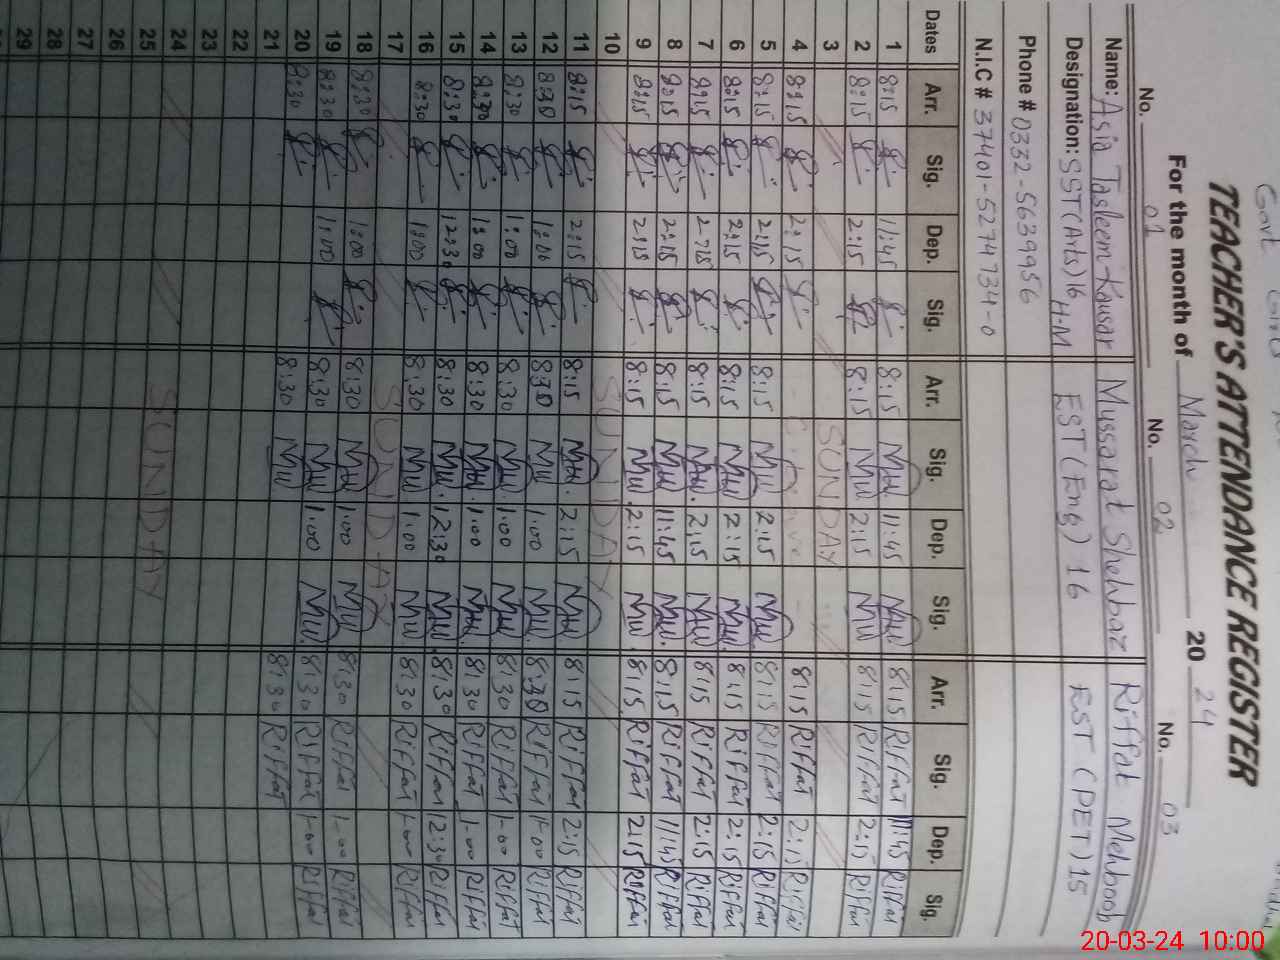 Govt
TEACHER'S ATTENDANCE REGISTER
For the month of March 2024
No. 01 No. 02 No. 03
Name: Asia Tasleem Kausar Mussarat Shehbaz Riffat Mehboob
Designation: SST(Arts)16 H-M EST(Eng) 16 EST (PET) 15
Phone # 0332-5639956
N.I.C # 37401-5274734-0
Dates Arr. Sig. Dep. Sig. Arr. Sig. Dep. Sig. Arr. Sig. Dep. Sig.
1 8:15 11:45 8:15 11:45 8:15 Riffat 11:45 Riffat
2 8:15 2:15 8:15 2:15 8:15 Riffat 2:15 Riffat
3 SUNDAY
4 8:15 2:15 8:15 Riffat 2:15 Riffat
5 8:15 2:15 8:15 2:15 8:15 Riffat 2:15 Riffat
6 8:15 2:15 8:15 2:15 8:15 Riffat 2:15 Riffat
7 8:15 2:15 8:15 2:15 8:15 Riffat 2:15 Riffat
8 8:15 2:15 8:15 11:45 8:15 Riffat 11:45 Riffat
9 8:15 2:15 8:15 2:15 8:15 Riffat 2:15 Riffat
10 SUNDAY
11 8:15 2:15 8:15 2:15 8:15 Riffat 2:15 Riffat
12 8:30 1:00 8:30 1:00 8:30 Riffat 1-00 Riffat
13 8:30 1:00 8:30 1:00 8:30 Riffat 1-00 Riffat
14 8:30 1:00 8:30 1:00 8:30 Riffat 1-00 Riffat
15 8:30 12:30 8:30 12:30 8:30 Riffat 12:30 Riffat
16 8:30 1:00 8:30 1:00 8:30 Riffat 1-00 Riffat
17 SUNDAY
18 8:30 1:00 8:30 1:00 8:30 Riffat 1-00 Riffat
19 8:30 1:00 8:30 1:00 8:30 Riffat 1-00 Riffat
20 8:30 8:30 8:30 Riffat
21
22
23
24 SUNDAY
25
26
27
28
29
20-03-24 10:00